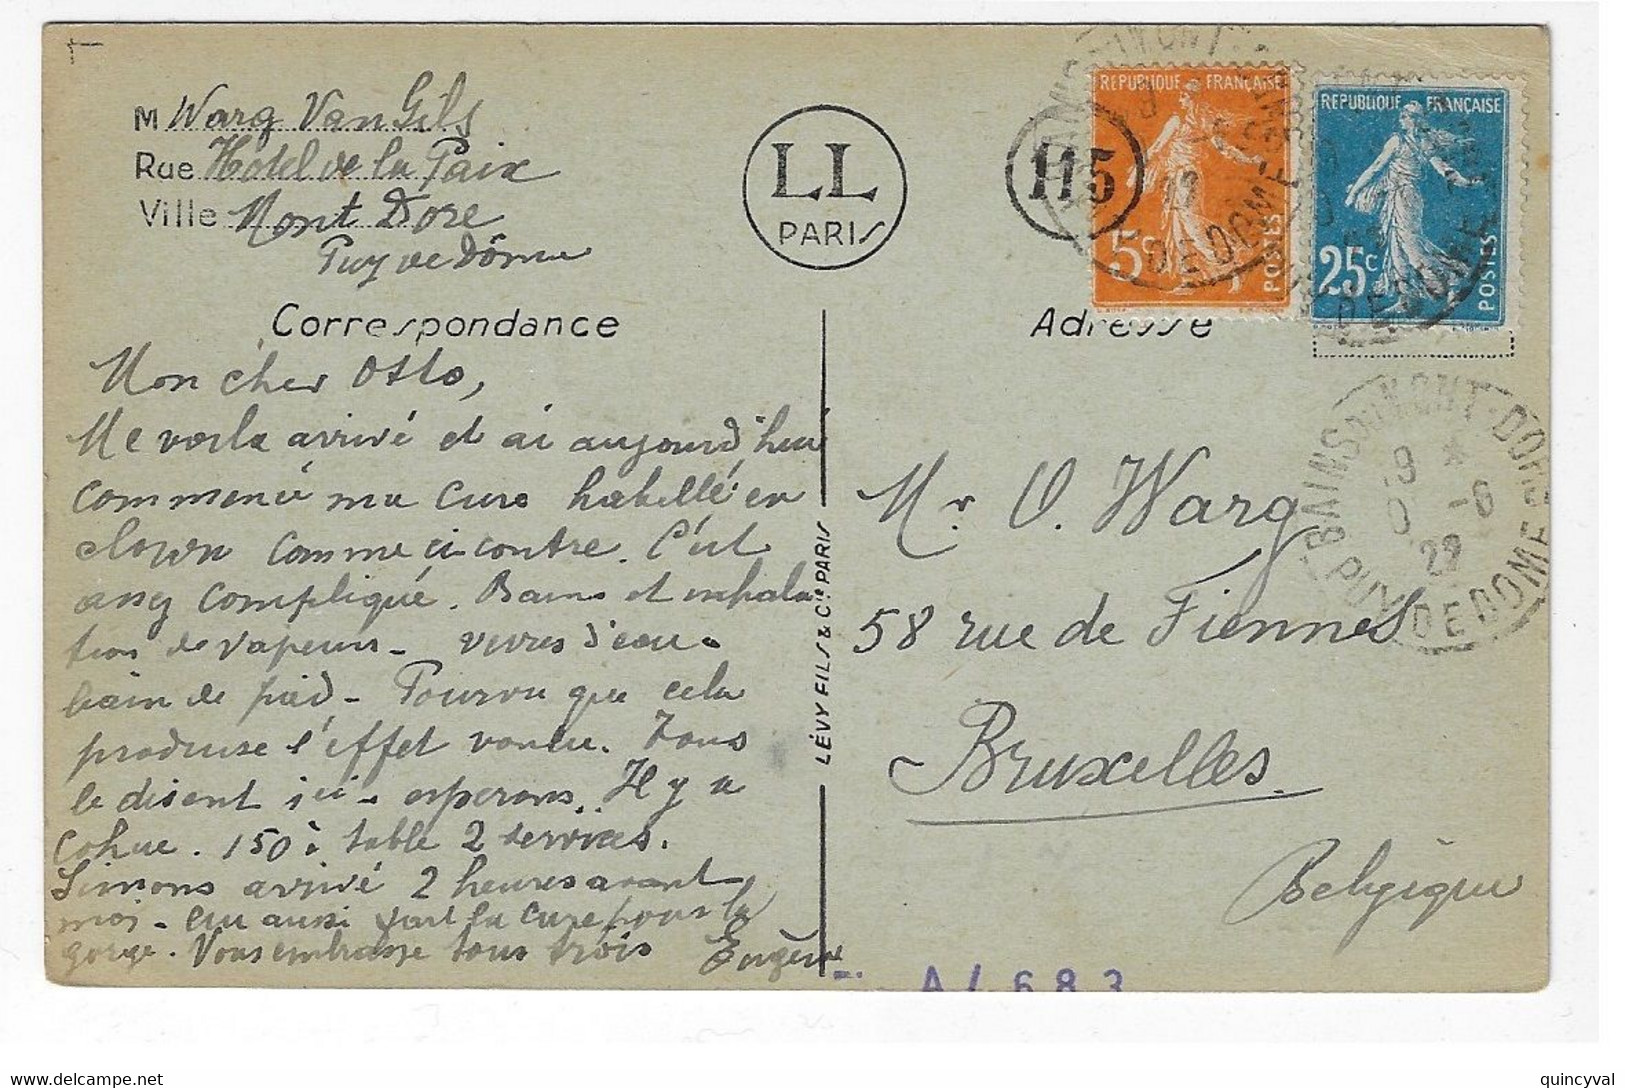 M Warg Van Gils
Rue Hotel de la Paix
Ville Mont Dore
Puy de Dôme
LL
PARIS
115
REPUBLIQUE FRANÇAISE
5c
POSTES
REPUBLIQUE FRANÇAISE
25c
POSTES
Correspondance
Adresse
Mon cher Otto,
Me voila arrivé et ai aujourd'hui
commencé ma cure habillé en
clown comme ci-contre. C'est
assez compliqué. Bains et inhala
tion de vapeurs - verres d'eau -
bain de pied - Pourvu que cela
produise l'effet voulu. Tous
le disent ici - esperons. Il y a
cohue. 150 à table 2 services.
Simons arrivé 2 heures avant
moi - lui aussi fait la cure pour la
gorge. Vous embrasse tous trois Eugène
LÉVY FILS & Cie PARIS
Mr. O. Warg
58 rue de Fiennes
Bruxelles
Belgique
BAINS DU MONT-DORE
19 *
-6
22
PUY DE DOME
A4683
delcampe.net
quincyval